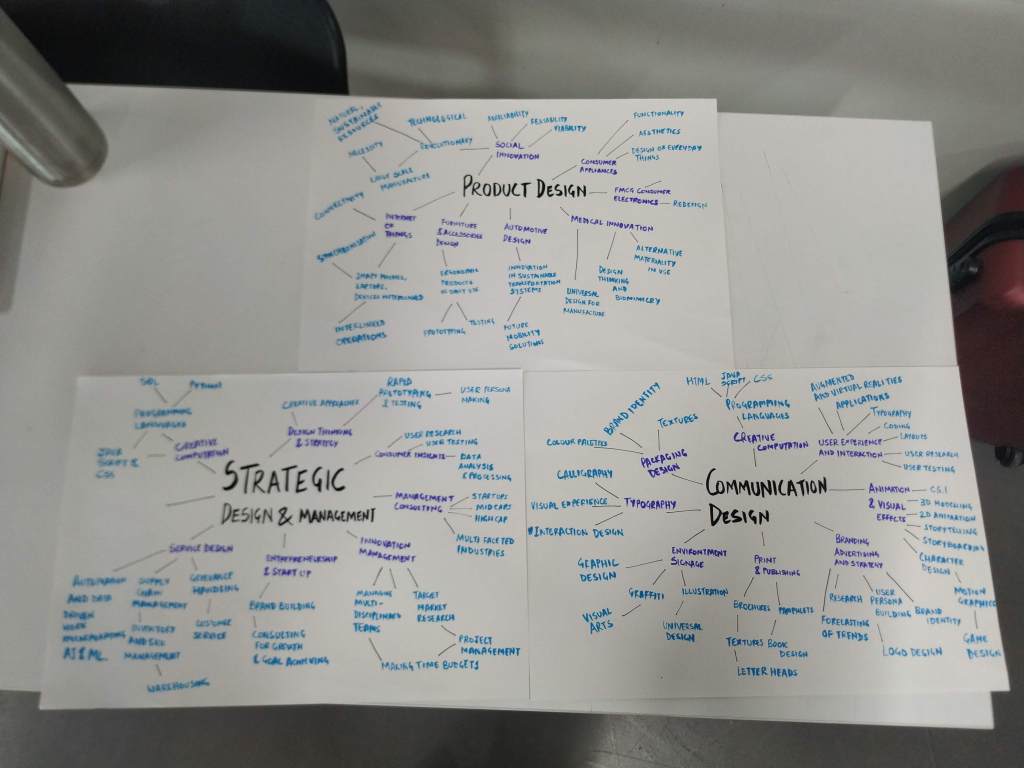 NATURAL,
SUSTAINABLE
RESOURCES
TECHNOLOGICAL
AVAILABILITY
RELIABILITY
VIABILITY
FUNCTIONALITY
AESTHETICS
NECESSITY
REVOLUTIONARY
SOCIAL
INNOVATION
CONSUMER
APPLIANCES
DESIGN OF EVERYDAY
THINGS
LARGE SCALE
MANUFACTURE
PRODUCT DESIGN
FMCG CONSUMER
ELECTRONICS
REDESIGN
CONNECTIVITY
INTERNET
OF
THINGS
FURNITURE
& ACCESSORIES
DESIGN
AUTOMOTIVE
DESIGN
MEDICAL INNOVATION
SYNCHRONISATION
SMART PHONES,
LAPTOPS,
DEVICES
ERGONOMIC
PRODUCTS
IN DAILY USE
INNOVATION
IN SUSTAINABLE
TRANSPORTATION
SYSTEMS
UNIVERSAL
DESIGN FOR
MANUFACTURE
DESIGN
THINKING
AND
BIOMIMICRY
ALTERNATIVE
MATERIALITY
IN USE
INTERLINKED
OPERATIONS
PROTOTYPING
TESTING
FUTURE
MOBILITY
SOLUTIONS
SQL
PYTHON
PROGRAMMING
LANGUAGES
JAVA
SCRIPT &
CSS
CREATIVE
COMPUTATION
CREATIVE APPROACHES
DESIGN THINKING
& STRATEGY
RAPID
PROTOTYPING
& TESTING
USER PERSONA
MAKING
USER RESEARCH
USER TESTING
CONSUMER INSIGHTS
DATA
ANALYSIS
& PROCESSING
STRATEGIC
DESIGN & MANAGEMENT
MANAGEMENT
CONSULTING
STARTUPS
MIDCAPS
HIGH CAP
MULTI FACETED
INDUSTRIES
SERVICE DESIGN
ENTREPRENEURSHIP
& START UP
INNOVATION
MANAGEMENT
AUTOMATION
AND DATA
DRIVEN
WORK
AI & ML
SUPPLY
CHAIN
MANAGEMENT
INVENTORY
AND SKU
MANAGEMENT
WAREHOUSING
GRIEVANCE
HANDLING
CUSTOMER
SERVICE
BRAND BUILDING
CONSULTING
FOR GROWTH
& GOAL ACHIEVING
MANAGING
MULTI-
DISCIPLINARY
TEAMS
TARGET
MARKET
RESEARCH
PROJECT
MANAGEMENT
MAKING TIME BUDGETS
BRAND IDENTITY
TEXTURES
COLOUR PALETTES
PACKAGING
DESIGN
HTML
JAVA
SCRIPT
CSS
PROGRAMMING
LANGUAGES
CREATIVE
COMPUTATION
AUGMENTED
AND VIRTUAL REALITIES
APPLICATIONS
TYPOGRAPHY
CODING
LAYOUTS
USER EXPERIENCE
AND INTERACTION
USER RESEARCH
USER TESTING
CALLIGRAPHY
VISUAL EXPERIENCE
INTERACTION DESIGN
TYPOGRAPHY
COMMUNICATION
DESIGN
ANIMATION
& VISUAL
EFFECTS
CG.I
3D MODELLING
2D ANIMATION
STORYTELLING
STORYBOARDING
CHARACTER
DESIGN
MOTION
GRAPHICS
GAME
DESIGN
ENVIRONTMENT
SIGNAGE
GRAPHIC
DESIGN
GRAFFITI
VISUAL
ARTS
ILLUSTRATION
UNIVERSAL
DESIGN
PRINT
& PUBLISHING
BROCHURES
PAMPHLETS
TEXTURES
BOOK
DESIGN
LETTER HEADS
BRANDING
ADVERTISING
AND STRATEGY
RESEARCH
FORECASTING
OF TRENDS
USER
PERSONA
BUILDING
LOGO DESIGN
BRAND
IDENTITY